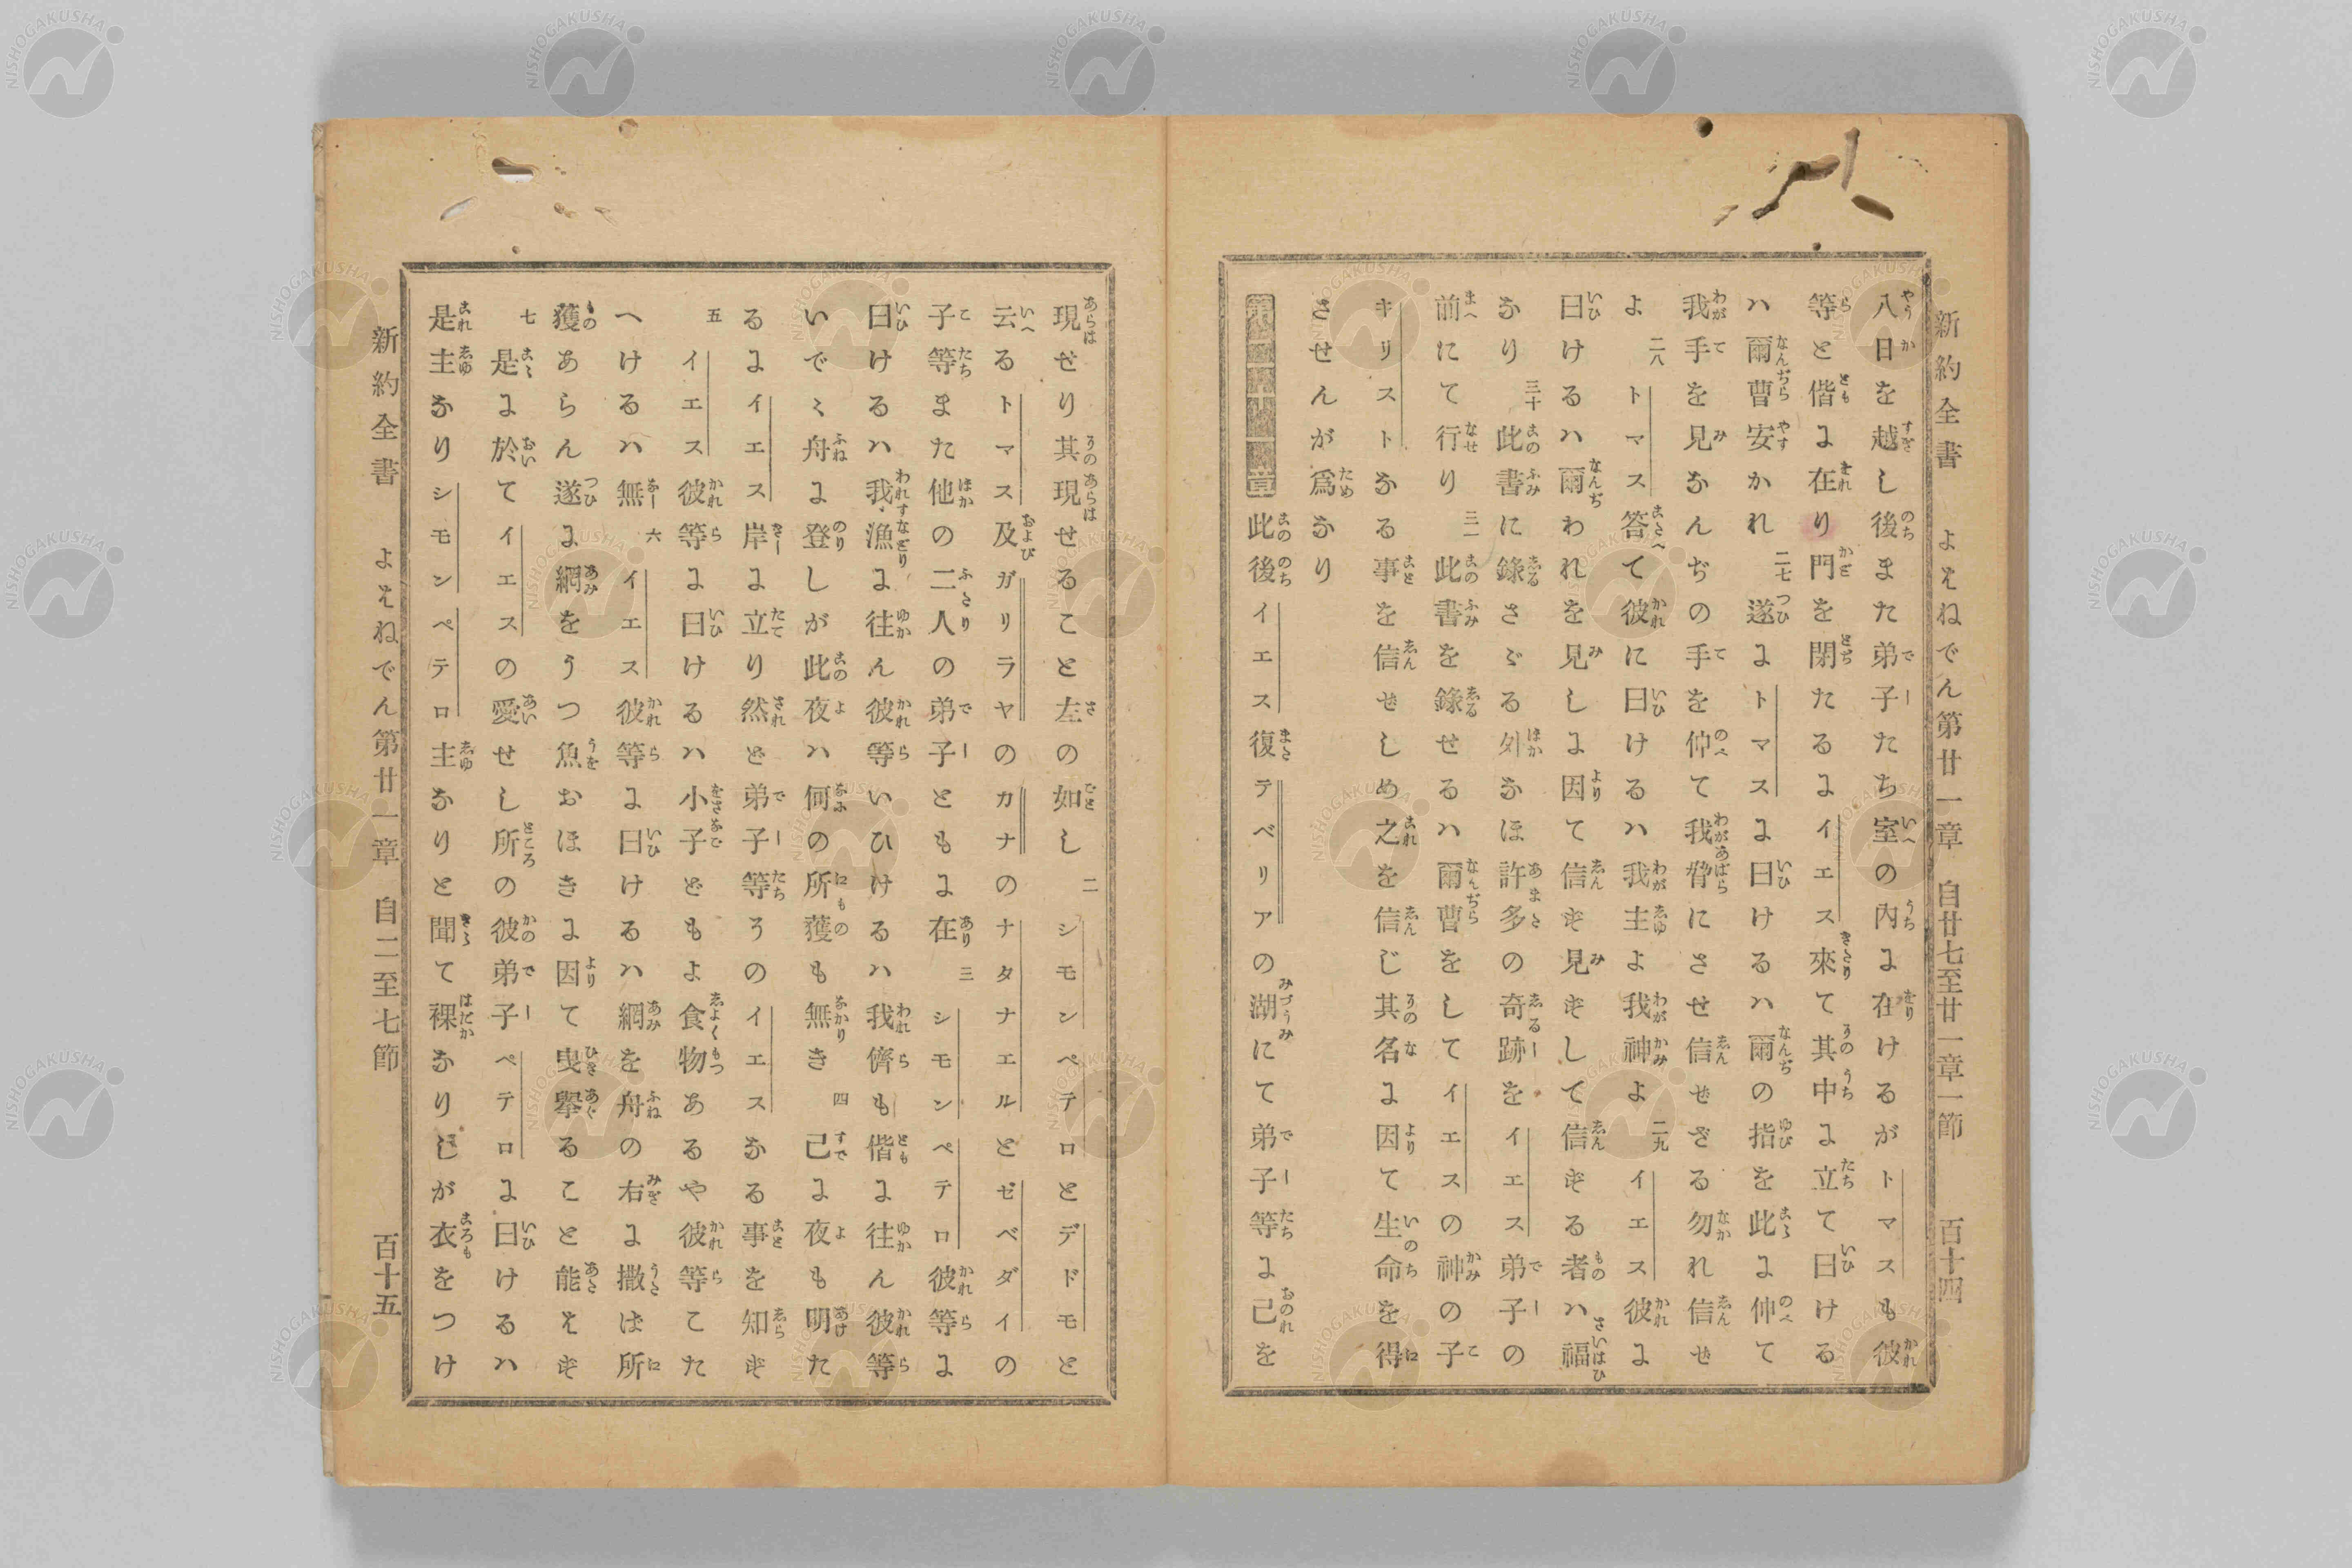 新約全書 よはねでん第廿一章 自廿七至廿一章一節 百十四
八日を越し後また弟子たち室の內に在けるがトマスも彼
等と偕に在り門を閉たるにイエス來て其中に立て曰ける
ハ爾曹安かれ 二七 遂にトマスに曰けるハ爾の指を此に伸て
我手を見なんぢの手を伸て我脅にさせ信せざる勿れ信せ
よ 二八 トマス答て彼に曰けるハ我主よ我神よ 二九 イエス彼に
曰けるハ爾われを見しに因て信ず見ずして信ずる者ハ福
なり 三十 此書に錄さゞる外なほ許多の奇跡をイエス弟子の
前にて行り 三一 此書を錄せるハ爾曹をしてイエスの神の子
キリストなる事を信せしめ之を信じ其名に因て生命を得
させんが爲なり
第廿一章 此後イエス復テベリアの湖にて弟子等に己を
現せり其現せること左の如し 二 シモンペテロとデドモと
云るトマス及ガリラヤのカナのナタナエルとゼベダイの
子等また他の二人の弟子ともに在 三 シモンペテロ彼等に
曰けるハ我漁に往ん彼等いひけるハ我儕も偕に往ん彼等
いでゝ舟に登しが此夜ハ何の所獲も無き 四 已に夜も明た
るにイエス岸に立り然ど弟子等そのイエスなる事を知ず
五 イエス彼等に曰けるハ小子どもよ食物あるや彼等こた
へけるハ無 六 イエス彼等に曰けるハ網を舟の右に撒は所
獲あらん遂に網をうつ魚おほきに因て曳擧ること能はず
七 是に於てイエスの愛せし所の彼弟子ペテロに曰けるハ
是主なりシモンペテロ主なりと聞て裸なりしが衣をつけ
新約全書 よはねでん第廿一章 自二至七節 百十五
NISHOGAKUSHA